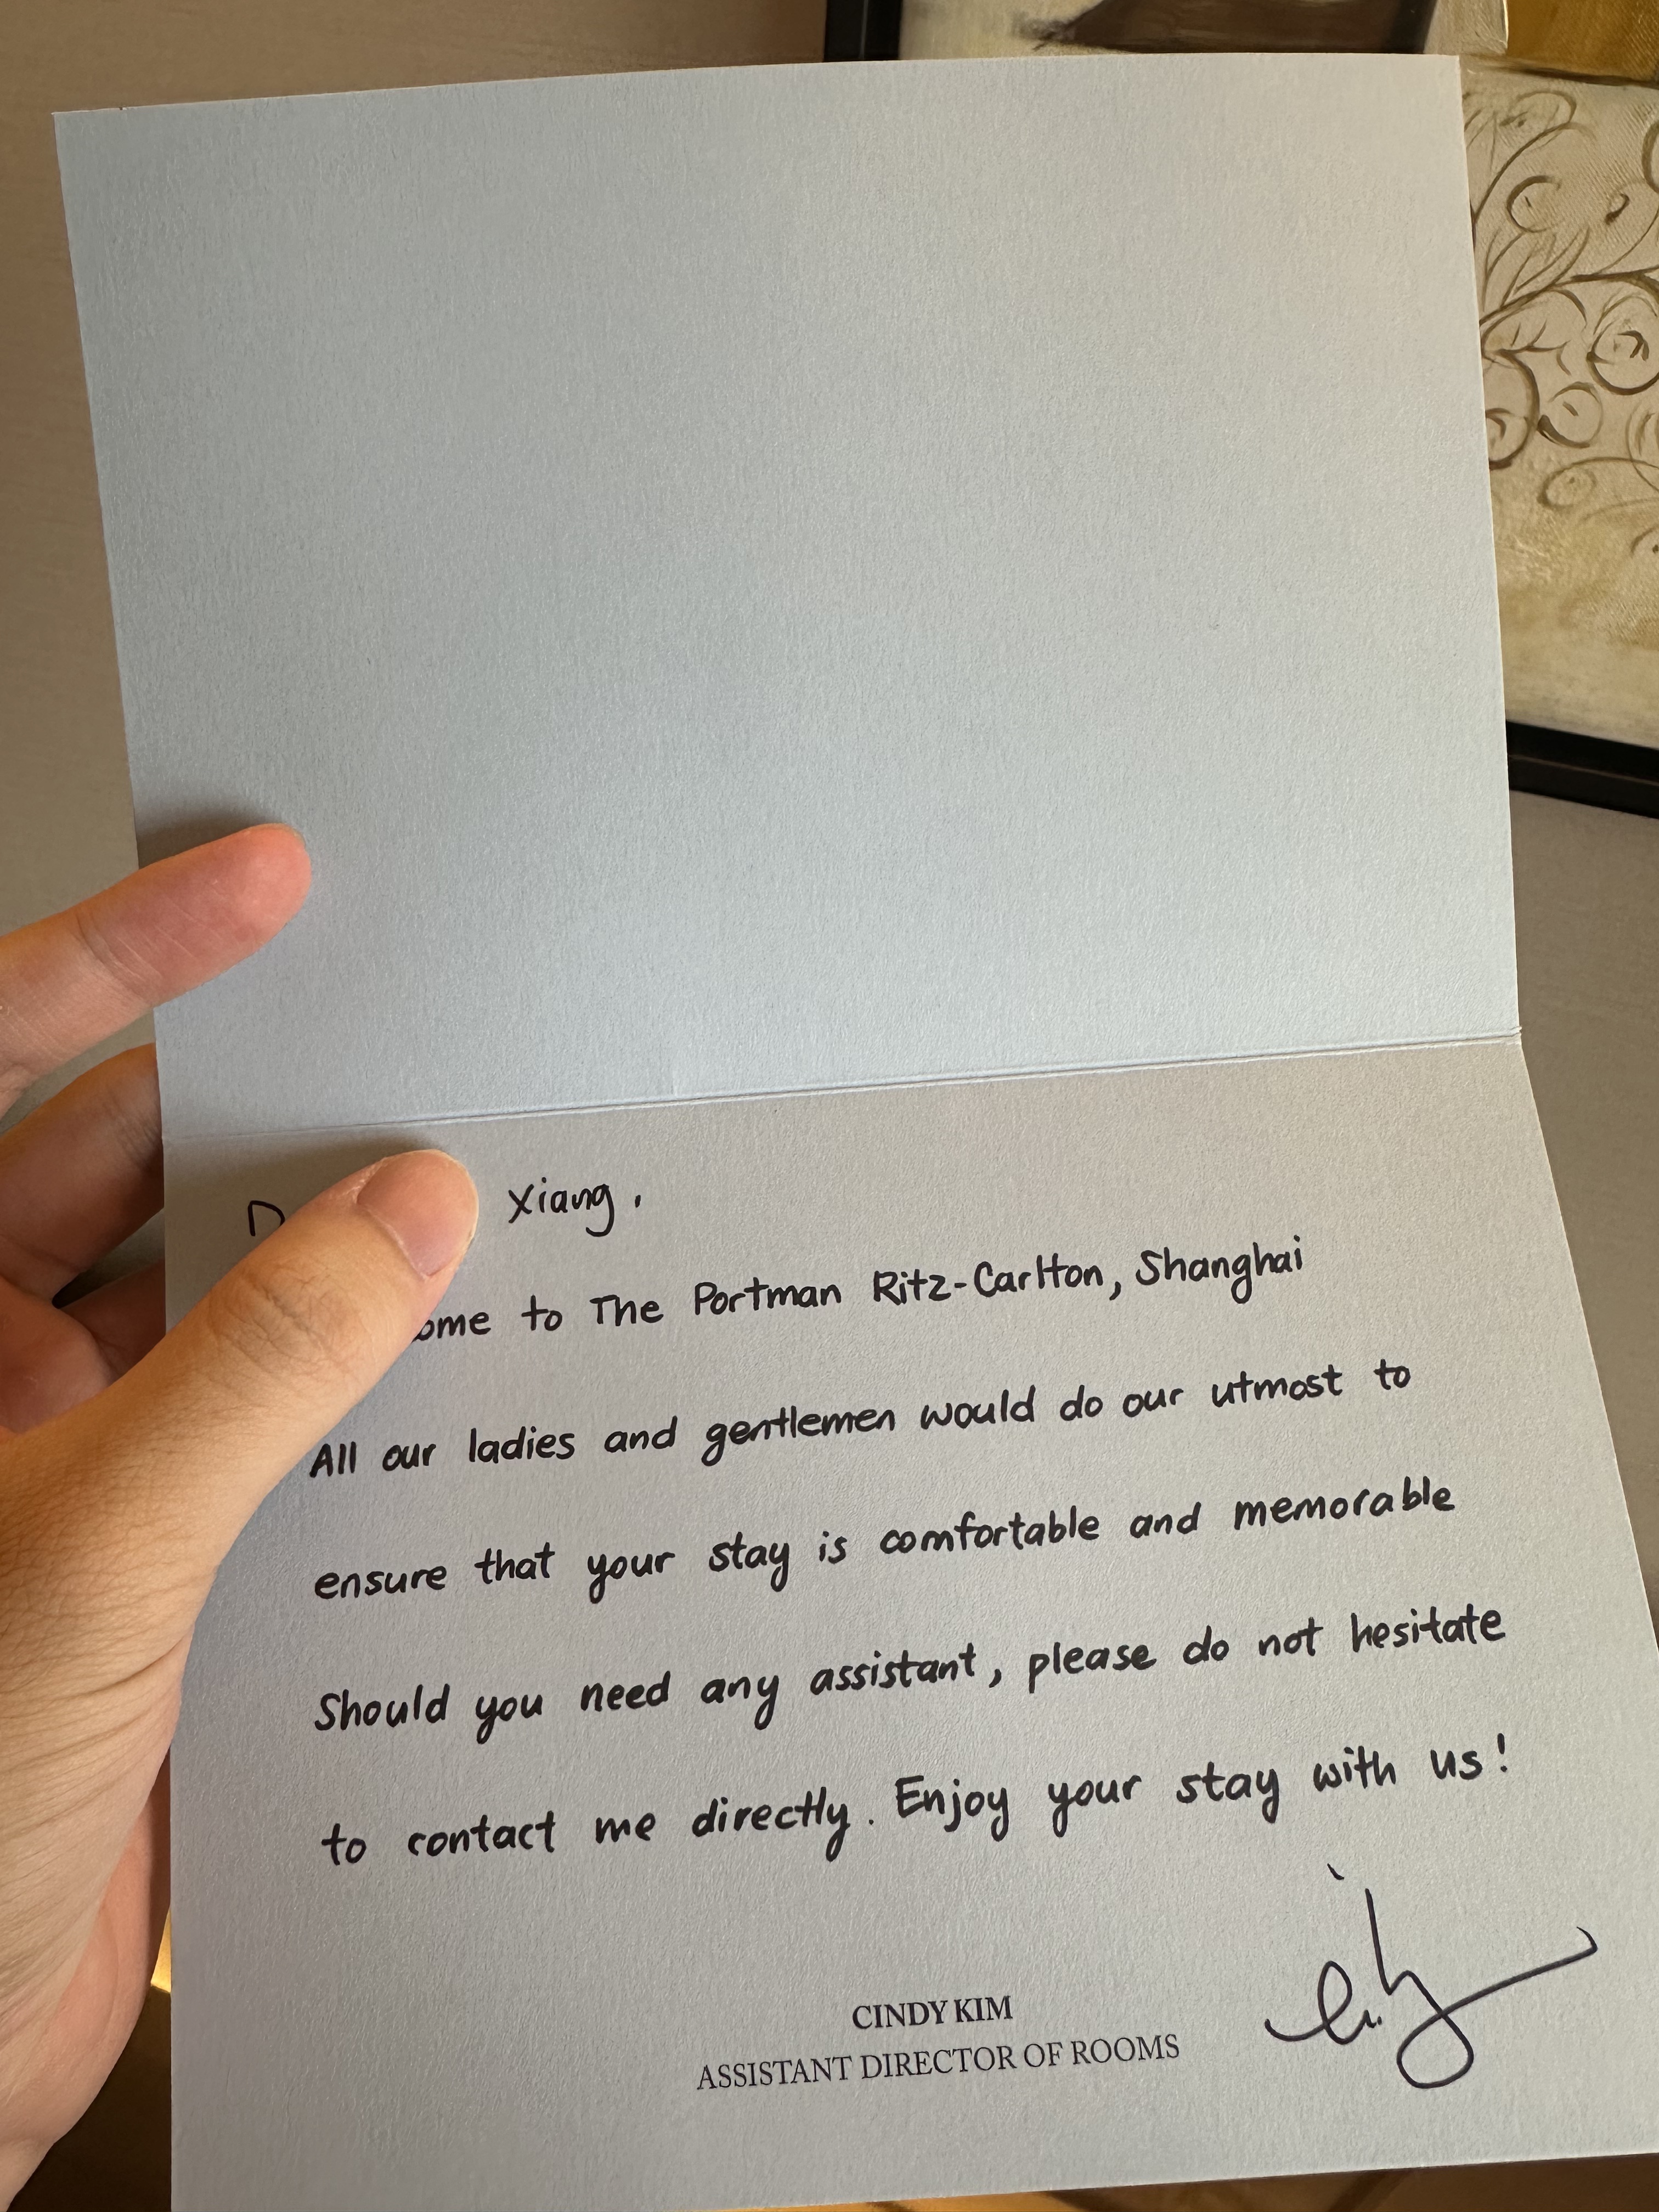 D Xiang,
ome to The Portman Ritz-Carlton, Shanghai
All our ladies and gentlemen would do our utmost to
ensure that your stay is comfortable and memorable
Should you need any assistant, please do not hesitate
to contact me directly. Enjoy your stay with us!
CINDY KIM
ASSISTANT DIRECTOR OF ROOMS